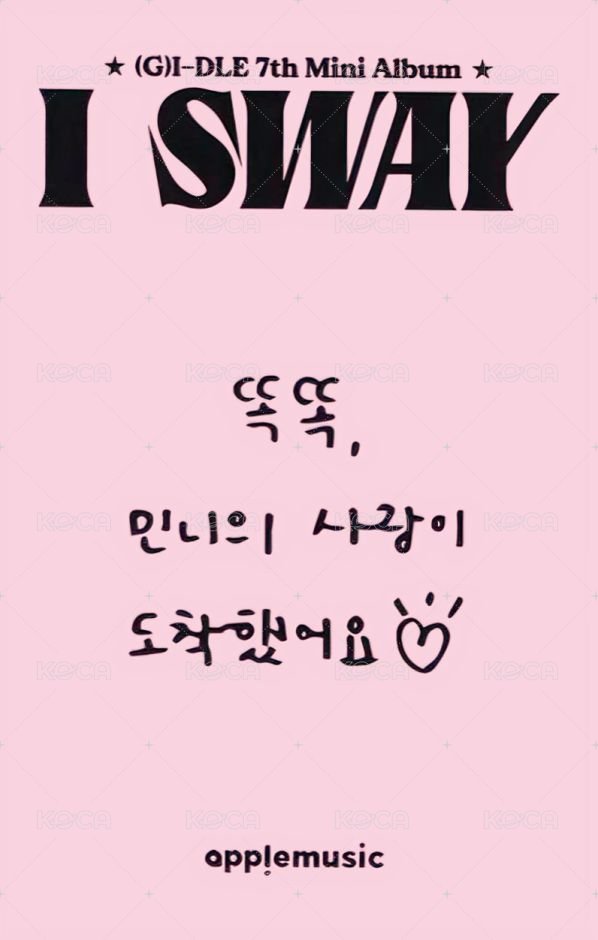 ★ (G)I-DLE 7th Mini Album ★
I SWAY
똑똑,
민니의 사랑이
도착했어요
applemusic
KOCA